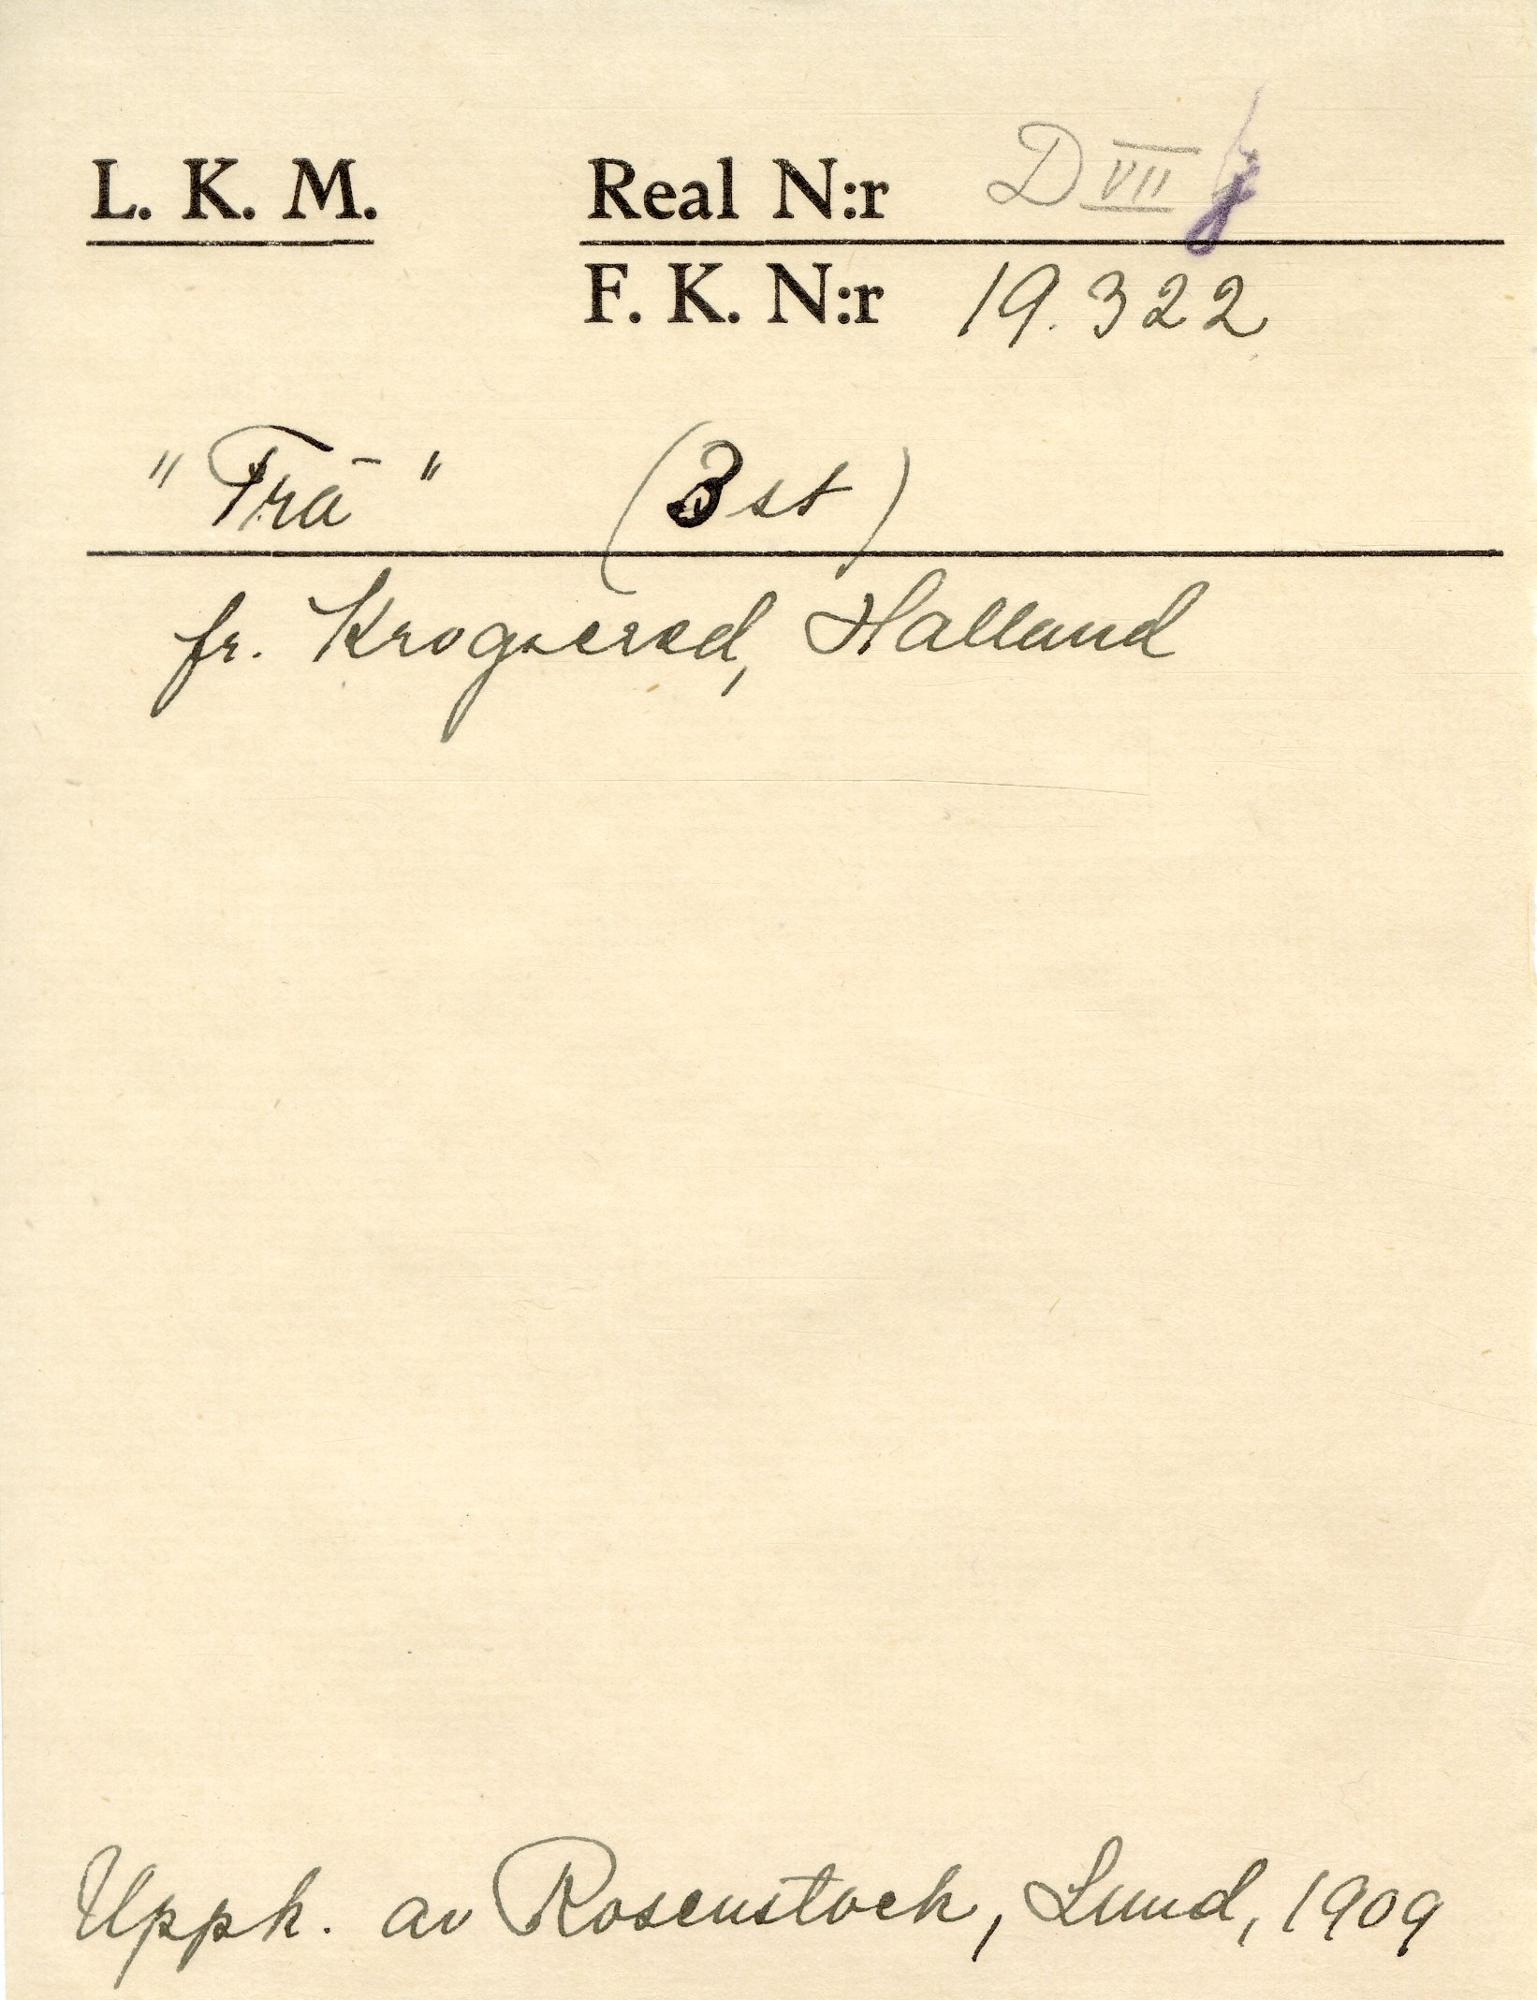 L. K. M. Real N:r D VII g
F. K. N:r 19.322
"Trä" (3 st)
fr. Krogsered, Halland
Uppk. av Rosenstock, Lund, 1909